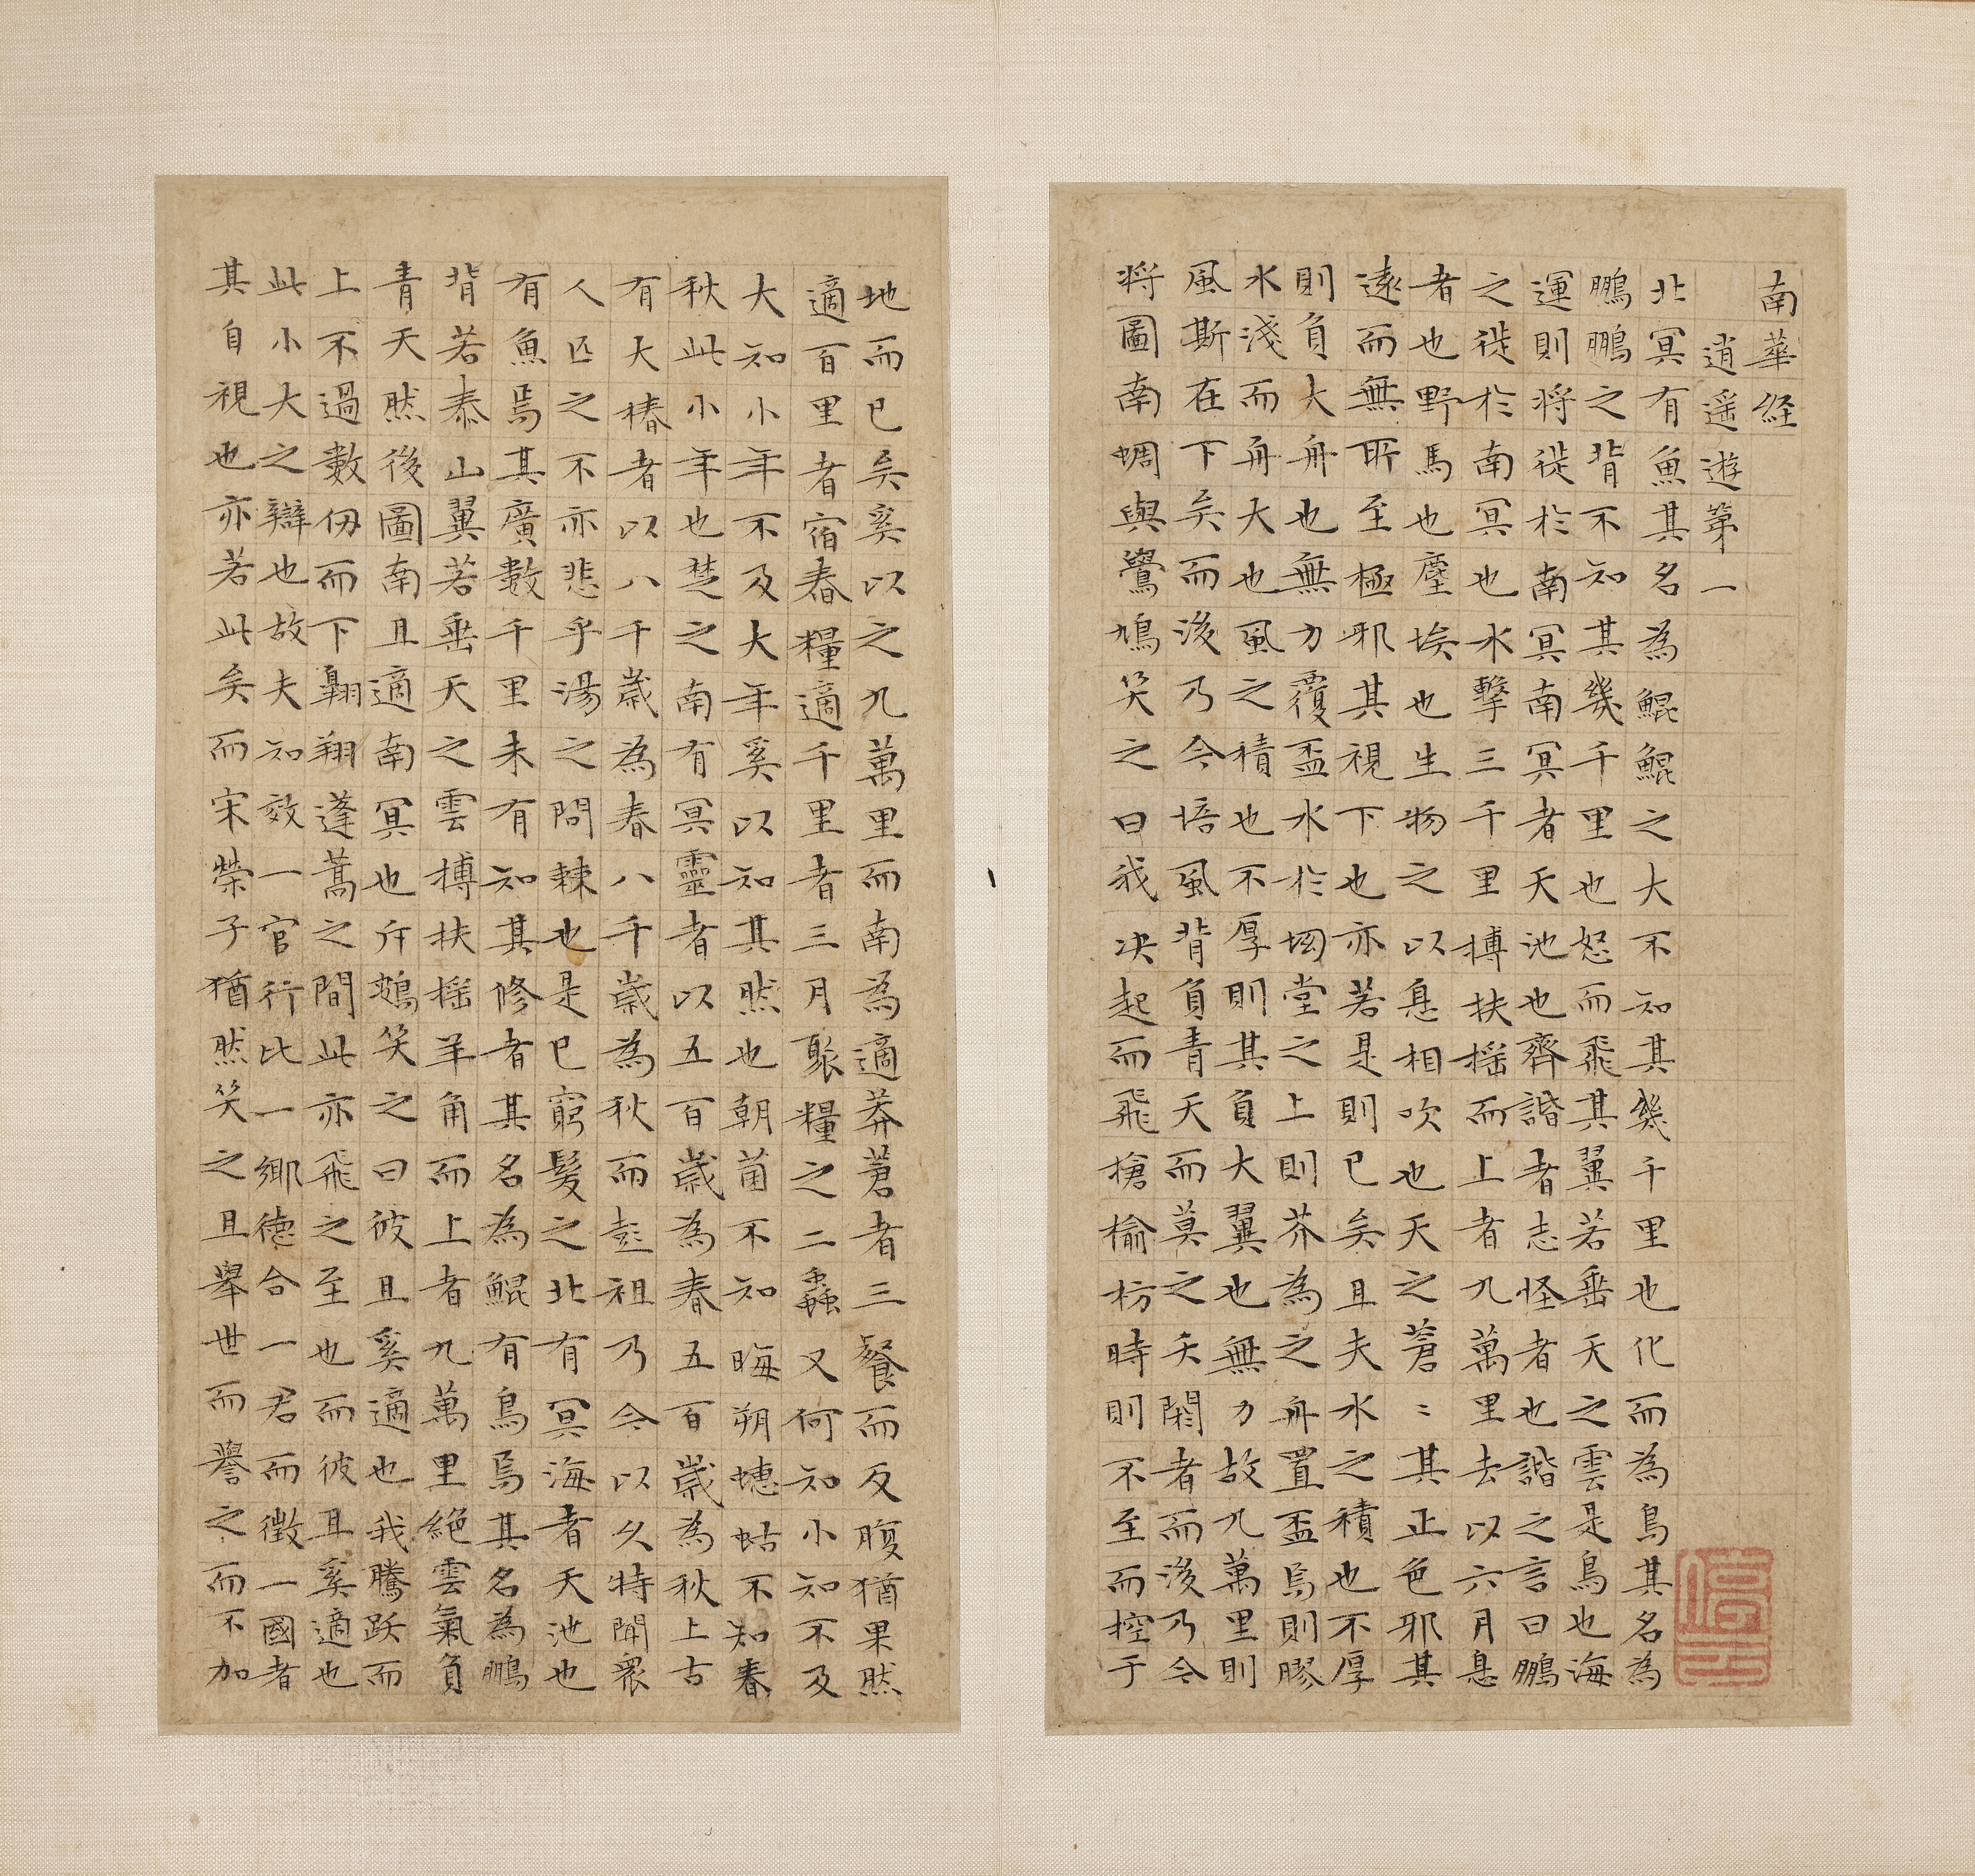 南華経
逍遥遊第一
北冥有魚其名為鯤鯤之大不知其幾千里也化而為鳥其名為
鵬鵬之背不知其幾千里也怒而飛其翼若垂天之雲是鳥也海
運則将徙於南冥南冥者天池也齊諧者志怪者也諧之言曰鵬
之徙於南冥也水擊三千里搏扶揺而上者九萬里去以六月息
者也野馬也塵埃也生物之以息相吹也天之蒼〻其正色邪其
遠而無所至極邪其視下也亦若是則已矣且夫水之積也不厚
則負大舟也無力覆盃水於坳堂之上則芥為之舟置盃焉則膠
水淺而舟大也風之積也不厚則其負大翼也無力故九萬里則
風斯在下矣而後乃今培風背負青天而莫之夭閼者而後乃今
将圖南蜩與鷽鳩笑之曰我决起而飛搶榆枋時則不至而控于
地而已矣奚以之九萬里而南為適莽蒼者三餐而反腹猶果然
適百里者宿舂糧適千里者三月聚糧之二蟲又何知小知不及
大知小年不及大年奚以知其然也朝菌不知晦朔蟪蛄不知春
秋此小年也楚之南有冥靈者以五百歲為春五百歲為秋上古
有大椿者以八千歲為春八千歲為秋而彭祖乃今以久特聞衆
人匹之不亦悲乎湯之問棘也是已窮髮之北有冥海者天池也
有魚焉其廣數千里未有知其修者其名為鯤有鳥焉其名為鵬
背若泰山翼若垂天之雲搏扶揺羊角而上者九萬里絕雲氣負
青天然後圖南且適南冥也斥鴳笑之曰彼且奚適也我騰躍而
上不過數仞而下翱翔蓬蒿之間此亦飛之至也而彼且奚適也
此小大之辯也故夫知效一官行比一鄉德合一君而徴一國者
其自視也亦若此矣而宋榮子猶然笑之且舉世而譽之而不加